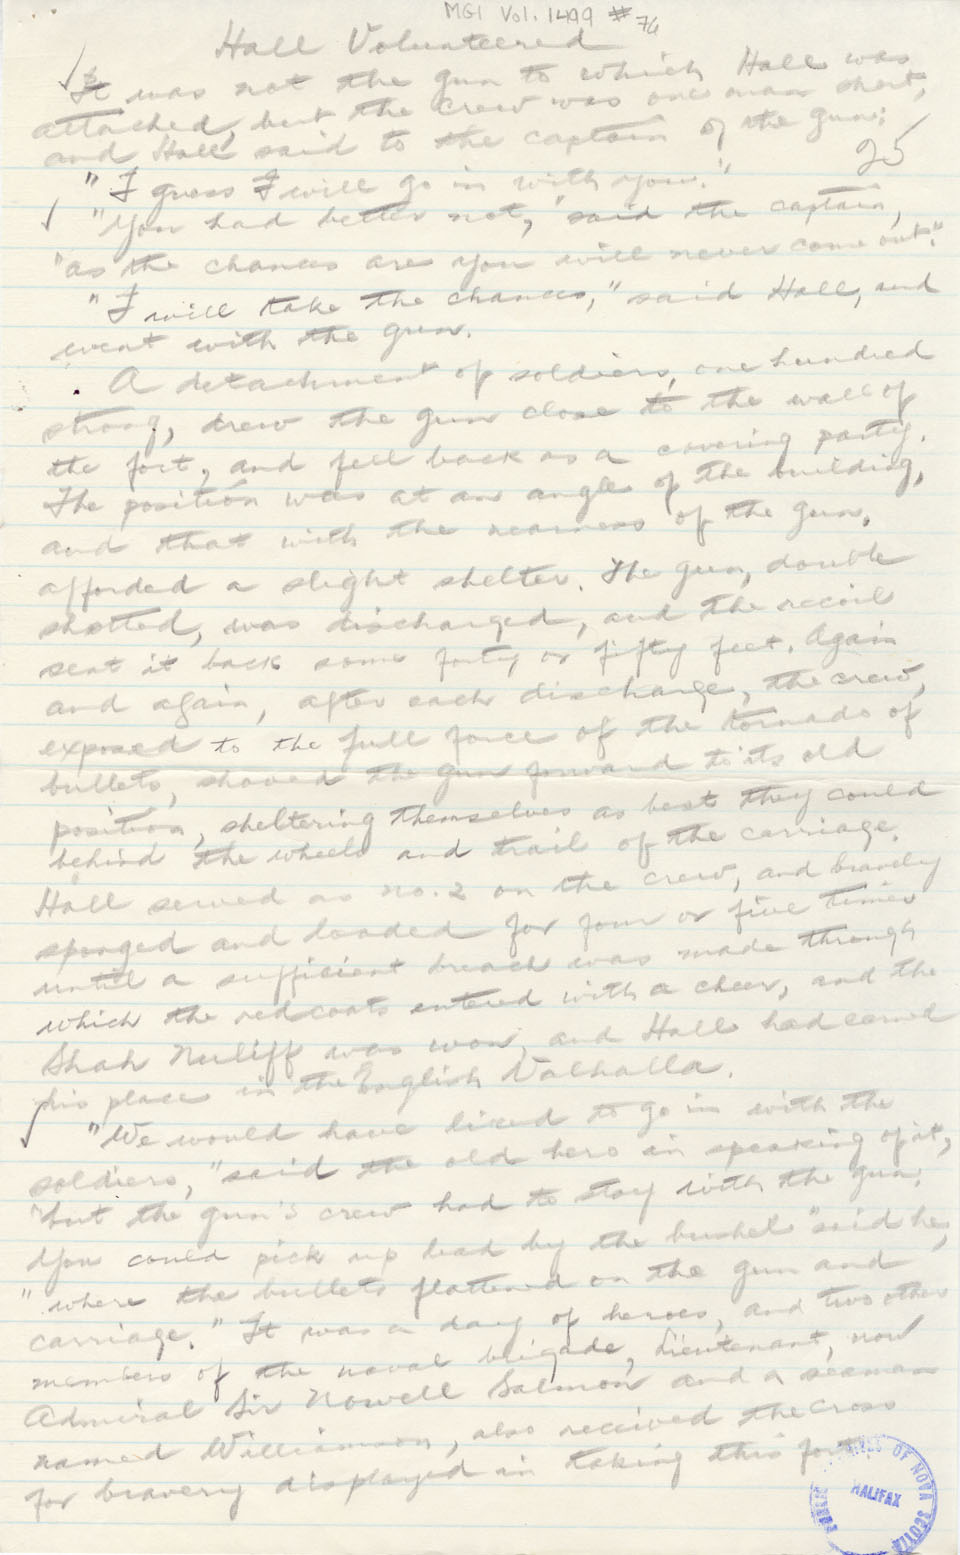 MG1 Vol. 1499 #74
Hall Volunteered
It was not the gun to which Hall was
attached, but the crew was one man short,
and Hall said to the captain of the gun:
25
"I guess I will go in with you."
"You had better not," said the captain,
"as the chances are you will never come out."
"I will take the chances," said Hall, and
went with the gun.
A detachment of soldiers, one hundred
strong, drew the gun close to the wall of
the fort, and fell back as a covering party.
The position was at an angle of the building,
and that with the nearness of the gun,
afforded a slight shelter. The gun, double
shotted, was discharged, and the recoil
sent it back some forty or fifty feet. Again
and again, after each discharge, the crew,
exposed to the full force of the tornado of
bullets, shoved the gun forward to its old
position, sheltering themselves as best they could
behind the wheels and trail of the carriage.
Hall served as no. 2 on the crew, and bravely
sponged and loaded for four or five times
until a sufficient breach was made through
which the redcoats entered with a cheer, and the
Shah Nuliff was won, and Hall had earned
his place in the English Valhalla.
"We would have liked to go in with the
soldiers," said the old hero in speaking of it,
"but the gun's crew had to stay with the gun.
You could pick up lead by the bushel" said he,
"where the bullets flattened on the gun and
carriage." It was a day of heroes, and two other
members of the naval brigade, Lieutenant, now
Admiral Sir Nowell Salmon and a seaman
named Williamson, also received the cross
for bravery displayed in taking this fort.
PUBLIC ARCHIVES OF NOVA SCOTIA
HALIFAX